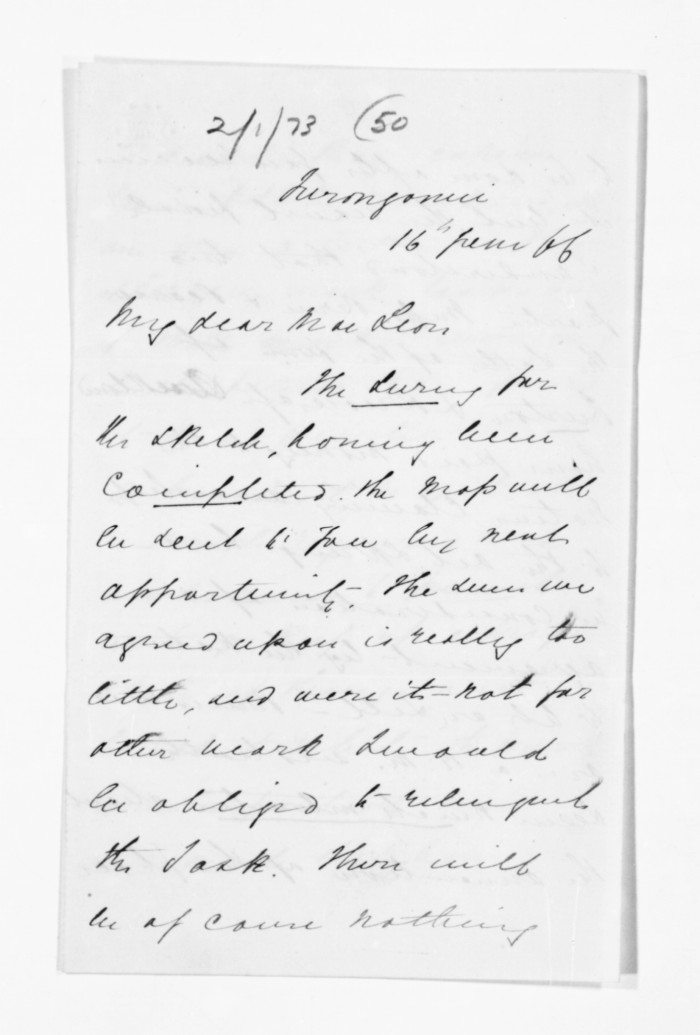 2/1/73 (50
Turongomui
16th Jany 66
My dear Mac Lean
The Survey for
the sketch, having been
Completed. the Map will
be sent to you by next
opportunity. The sum we
agreed upon is really too
little, and were it not for
other work I would
be obliged to relinquish
the Task. There will
be of couse nothing